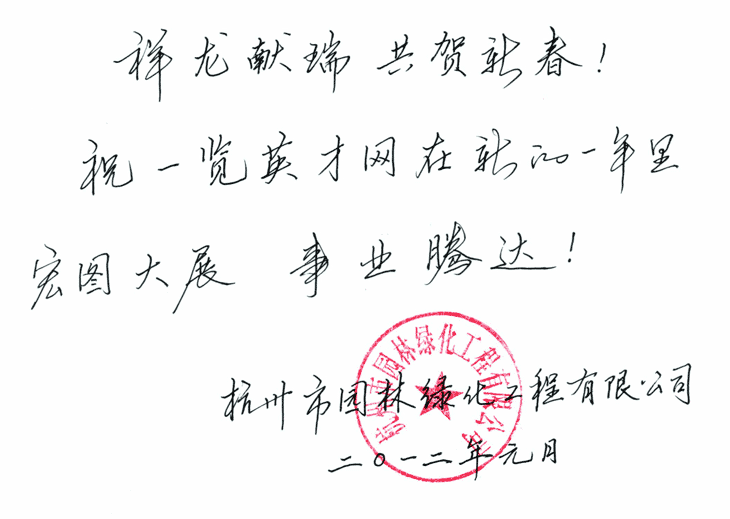 祥龙献瑞 共贺新春!
祝一览英才网在新的一年里
宏图大展 事业腾达!
杭州市园林绿化工程有限公司
杭州市园林绿化工程有限公司
二〇一二年元月